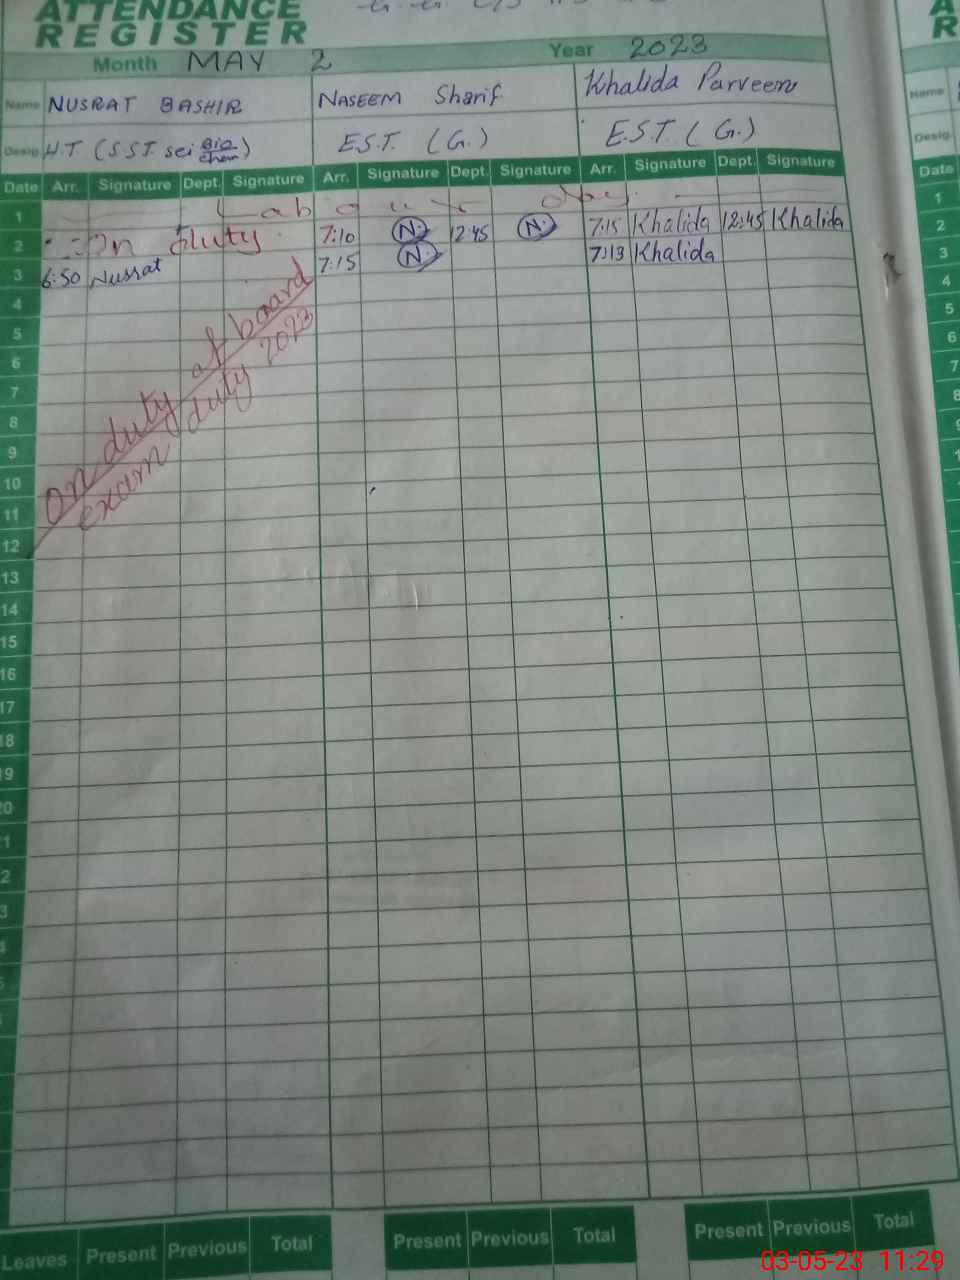 ATTENDANCE
REGISTER
Month MAY 2 Year 2023
Name NUSRAT BASHIR NASEEM Sharif Khalida Parveen Name
Desig. H.T. (S.S.T. sci Bio Chem) E.S.T. (G.) E.S.T. (G.) Desig.
Date Arr. Signature Dept. Signature Arr. Signature Dept. Signature Arr. Signature Dept. Signature Date
1 Labour day. 1
2 On duty. 7:10 N. 12:45 N. 7:15 Khalida 12:45 Khalida 2
3 6:50 Nusrat 7:15 N. 7:13 Khalida 3
4 4
5 5
6 6
7 7
8 8
9
10
11
12
on duty at board
exam duty 2023
13
14
15
16
17
18
19
20
Leaves Present Previous Total Present Previous Total Present Previous Total
03-05-23 11:29